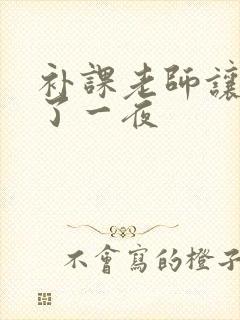 补課老師讓
了一夜
不會寫的橙子